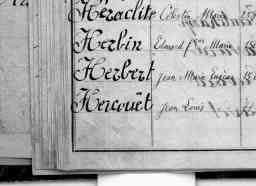 Heraclite Célestin Marie
Herbin Edouard fçois Marie
Herbert Jean Marie
Hercouët Jean Louis